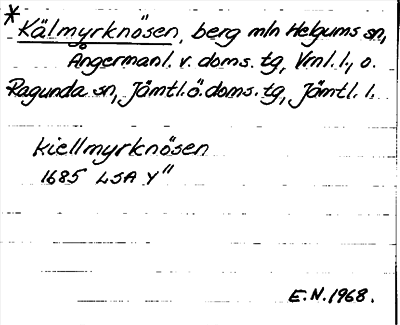 * Kälmyrknösen, berg mln Helgums sn,
Ångermanl. v. doms. tg, Vrnl. l., o.
Ragunda sn, Jämtl. ö. doms. tg, Jämtl. l.
Kiellmyrknösen
1685 LSA Y"
E.N. 1968.